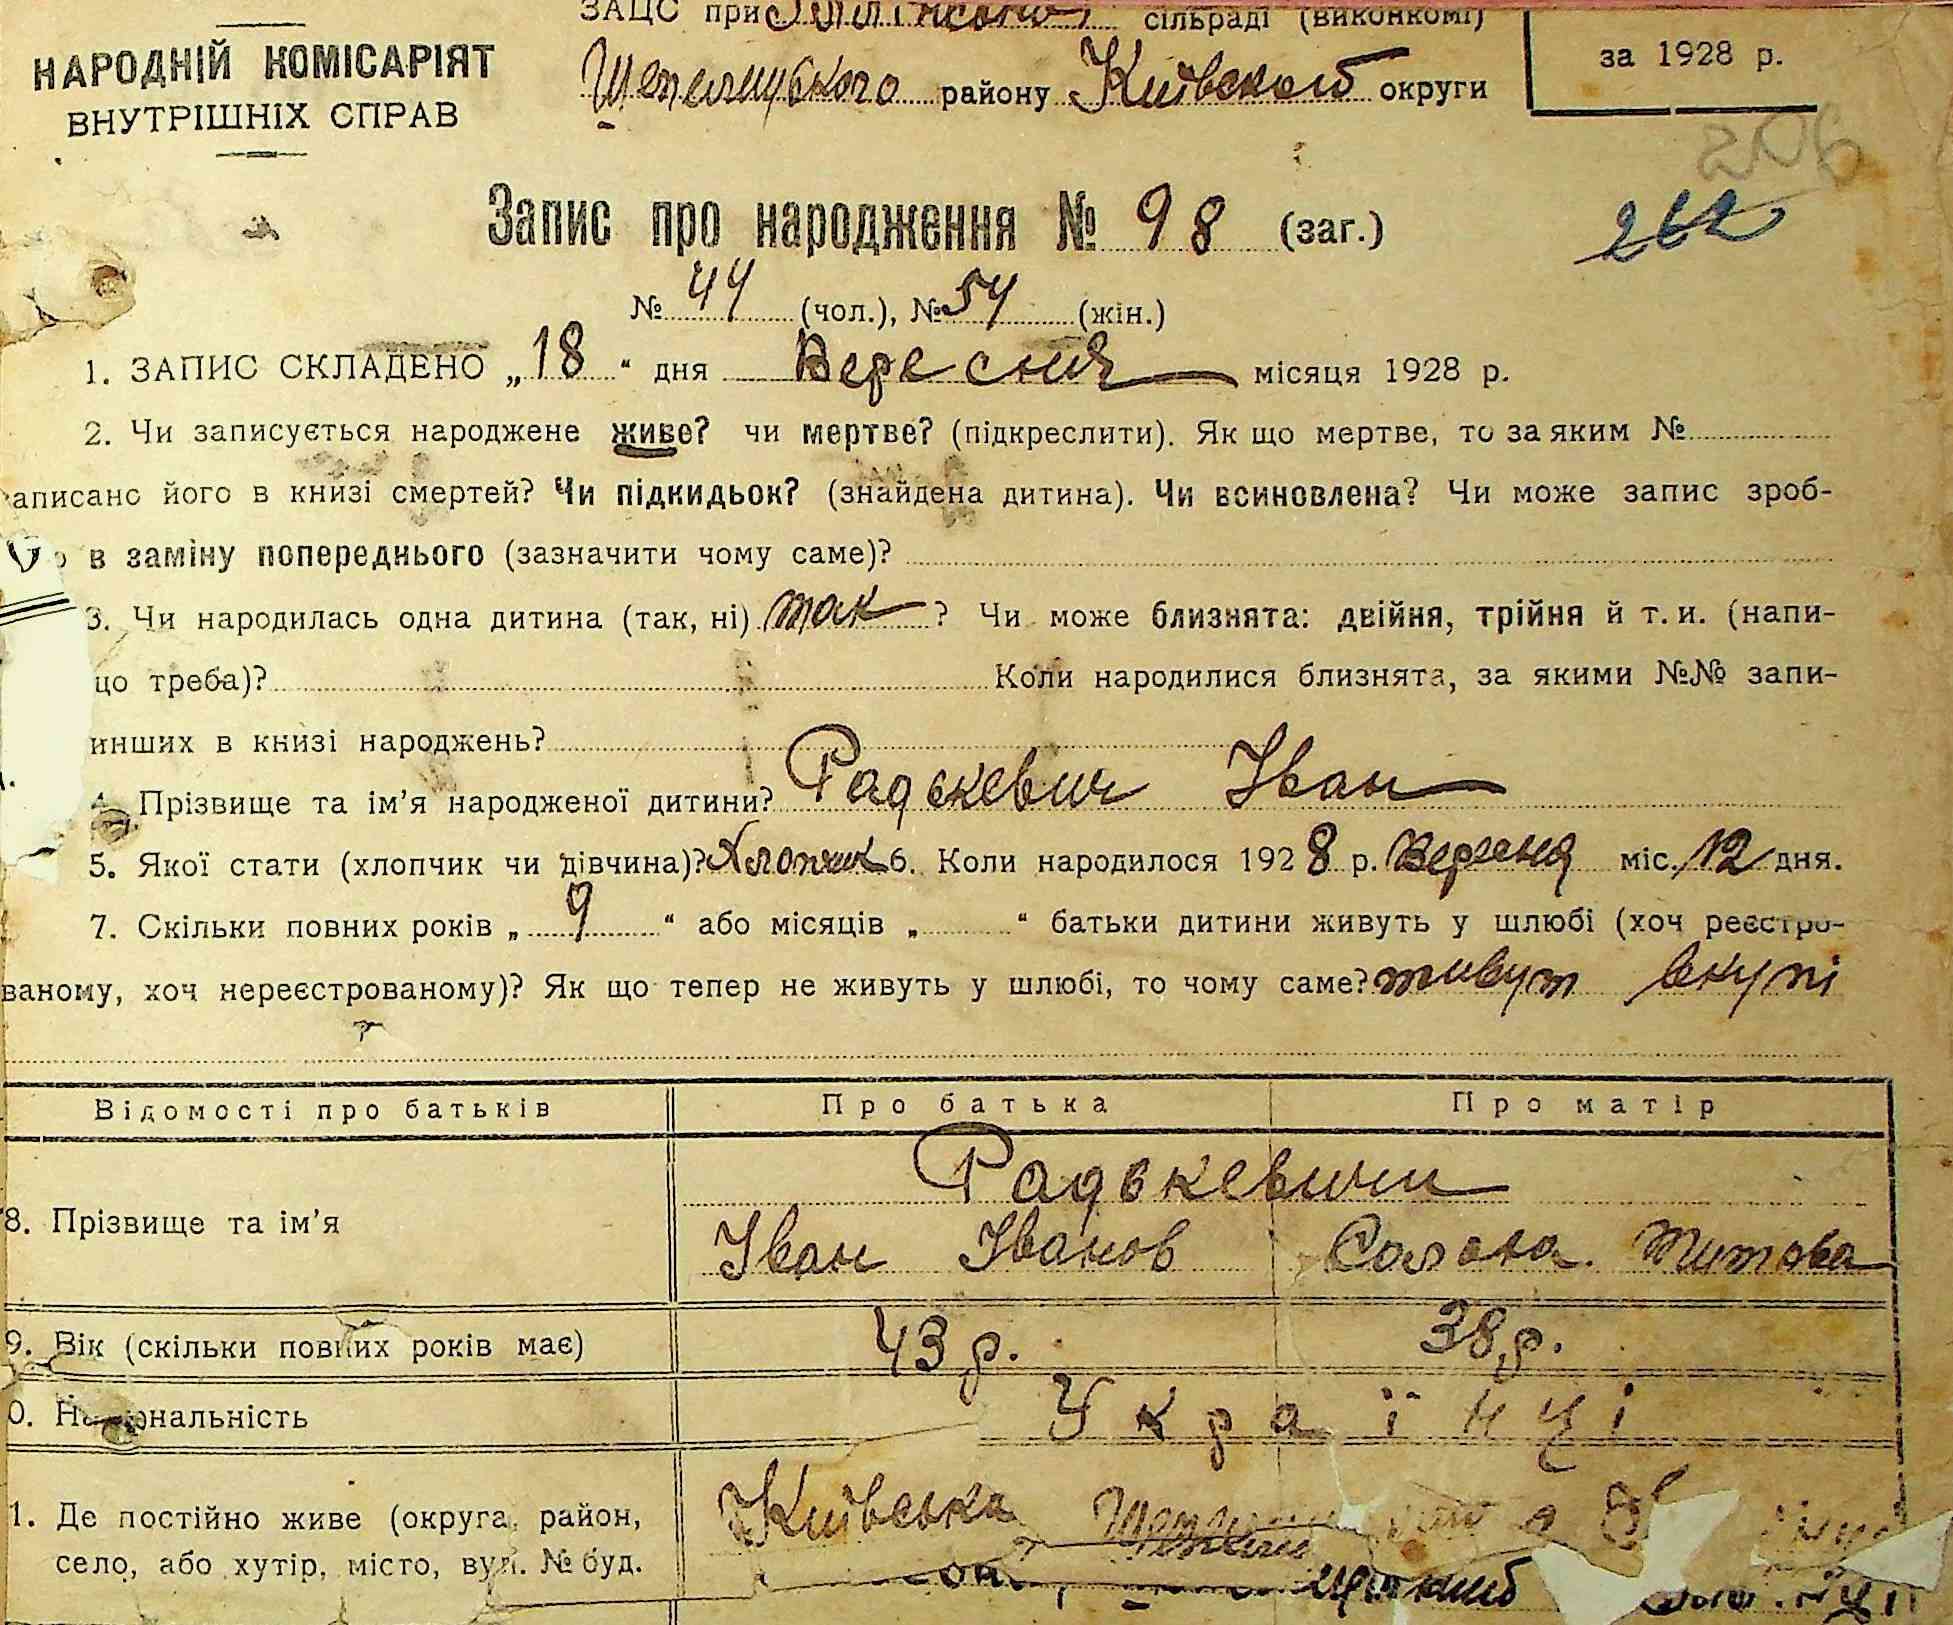 ЗАЦС при сільраді (виконкомі)
НАРОДНІЙ КОМІСАРІЯТ
ВНУТРІШНІХ СПРАВ
району Київської округи
за 1928 р.
202
262
Запис про народження № 98 (заг.)
№ 44 (чол.), № 54 (жін.)
1. ЗАПИС СКЛАДЕНО „18“ дня Вересня місяця 1928 р.
2. Чи записується народжене живе? чи мертве? (підкреслити). Як що мертве, то за яким №
аписано його в книзі смертей? Чи підкидьок? (знайдена дитина). Чи всиновлена? Чи може запис зроб-
о в заміну попереднього (зазначити чому саме)?
3. Чи народилась одна дитина (так, ні) так ? Чи може близнята: двійня, трійня й т. и. (напи-
що треба)? Коли народилися близнята, за якими №№ запи-
инших в книзі народжень?
4. Прізвище та ім’я народженої дитини? Радькевич Іван
5. Якої стати (хлопчик чи дівчина)? Хлопчик 6. Коли народилося 1928 р. Вересня міс. 12 дня.
7. Скільки повних років „ 9 “ або місяців „ “ батьки дитини живуть у шлюбі (хоч реєстро-
ваному, хоч нереєстрованому)? Як що тепер не живуть у шлюбі, то чому саме? живут вкупі
Відомості про батьків Про батька Про матір
Радькевичи
8. Прізвище та ім’я
Іван Іванов Солоха Титова
9. Вік (скільки повних років має) 43 р. 38 р.
0. Національність Українці
Київська
1. Де постійно живе (округа, район,
село, або хутір, місто, вул. № буд.